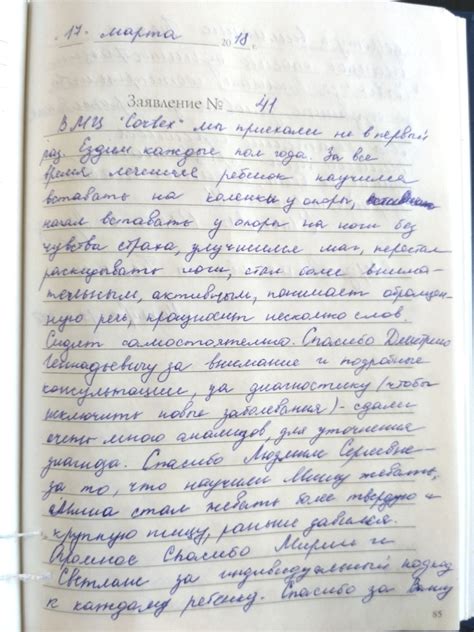 "17" марта 2018 г.
Заявление № 41
В МЦ "Corvex" мы приехали не в первый
раз. Ездим каждые пол года. За все
время лечения ребенок научился
вставать на коленки у опоры,
начал вставать у опоры на ноги без
чувства страха, улучшился шаг, перестал
раскидывать ноги, стал более внима-
тельным, активным, понимает обращен-
ную речь, произносит несколько слов.
Сидит самостоятельно. Спасибо Дмитрию
Геннадьевичу за внимание и подробные
консультации, за диагностику (чтобы
исключить новые заболевания) - сдали
очень много анализов, для уточнения
диагноза. Спасибо Людмиле Сергеевне
за то, что научили Мишу жевать,
Миша стал жевать более твердую и
крупную пищу, раньше давился.
Спасибо Марии и
Светлане за индивидуальный подход
к каждому ребенку. Спасибо за Вашу
85